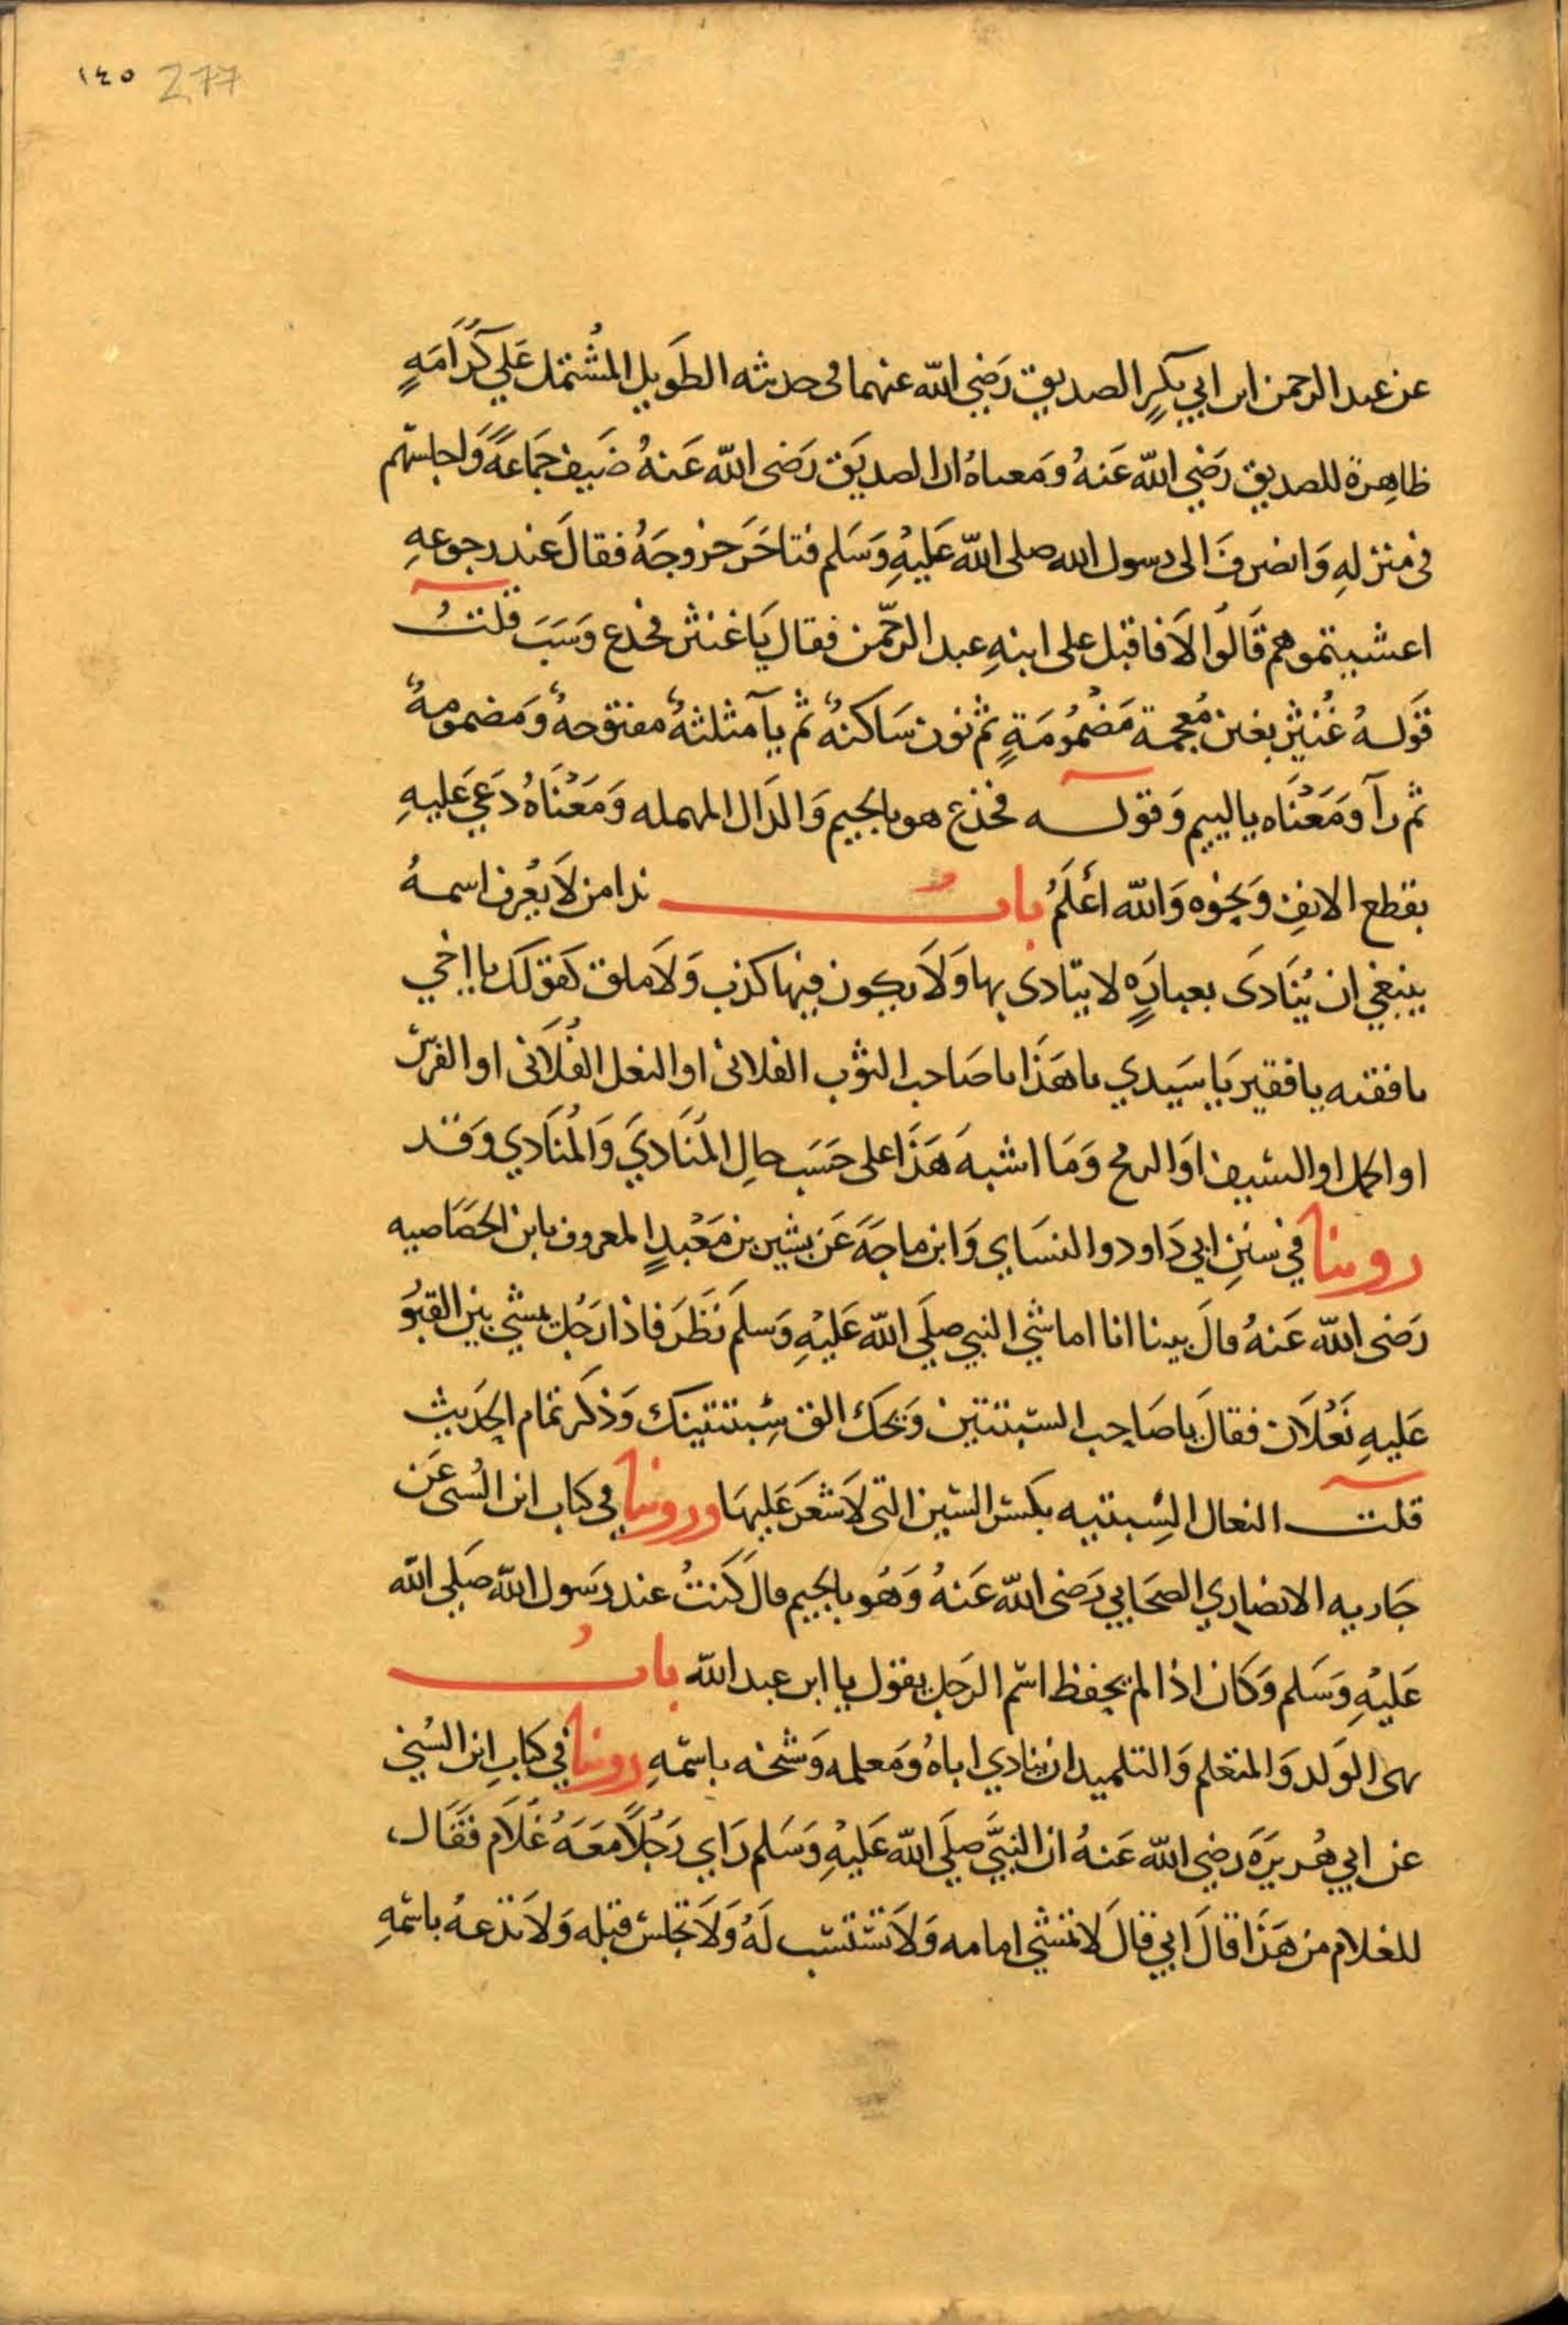 ١٤٥ 277
عن عبد الرحمن ابن ابي بكرٍ الصديق رَضِي الله عنهما في حديثه الطَويل المُشتمل عَلي كَرَامَةٍ
ظاهِرة للصديق رَضِي الله عَنهُ وَمَعناهُ ان الصديَق رَضى الله عَنهُ ضَيف جَمَاعَةً وَاجلسَهم
في منزلهِ وَانصَرفَ الى رسول الله صلى الله عَليْهِ وَسَلم فتاخَرَ خرُوجَهُ فقالَ عند رجوعهِ
اعشيتموهم قَالُوا لاَ فاقبل على ابنهِ عبد الرحّمن فقال يَا غنثر فجدع وَسَبَ قلتُ
قوَلهُ غُنثر بغين مُعجمة مَضْمُومَةٍ ثم نون سَاكنهٌ ثم ثآ مثلثهٌ مفتوحهٌ وَمَضمومهٌ
ثم رآ وَمَعْنَاه يا ليىم وَقوله فجدع هو بالجيم وَالدَال المهمله وَمَعْنَاهُ دَعَي عَليهِ
بقطع الانفِ وَنحْوه وَالله اعْلَمُ بابُ ندا من لاَ يعْرف اسمهُ
ينبغي ان يُنَادَى بعبارَةٍ لا يتادى بها وَلاَ يكون فيها كذب وَلاَ ملق كقولك يا اخي
يا فقيه يا فقير يَا سَيدي يا هَذَا يا صَاحب الثوْب الفلانى او النعل الفُلاَنى او الفرسَ
او الجمل او السَيف اوَ الرمح وَمَا اشبهَ هَذَا على حَسَب حالِ المُنَاديَ وَالمُنَادي وَقد
روينا في سننِ ابي دَاود والنسَاي وَابن ماجَةَ عَن بشير بن مَعْبدٍ المعروف بابن الخصَاصيه
رَضى الله عَنهُ قالَ بينا انا اماشي النبي صلَي الله عَليْهِ وَسلمَ نَظَرَ فاذا رَجُل يمشي بين القبُوَ
عَليهِ نَعْلاَن فقالَ يا صَاحِب السّبتتين وَيحَك الق سِبتتينك وَذكر تمَام الحَديث
قلت النعال السِّبتيه بكسَر السّين التى لاَ شعَرَ عَليهَا وروينا في كتاب ابن السُنى عَن
جَاريه الانصَاري الصحَابي رَضى الله عَنهُ وَهُو بالجيم قالَ كنتُ عند رَسول الله صَلي الله
عَليْهِ وَسَلم وَكَان اذا لم يحفظ اسْم الرَجل يقول يا ابن عبد الله بابُ
نهى الوَلد وَالمتعَلم وَالتلميد ان ينادي اباهُ وَمَعلمه وَشَيخه باسْمهِ روينا في كتابِ ابن السُني
عن ابي هُريَرَة رضِي الله عَنهُ ان النبيَّ صلَي الله عَليْهِ وَسَلم رَاي رَجُلاً مَعَهُ غُلاَم فقَال
للغلام من هَذَا قالَ ابي قالَ لا تمشي امامه وَلاَ تستسَب لَهُ وَلاَ تجلسْ قبله وَلاَ تدعهُ باسمْهِ